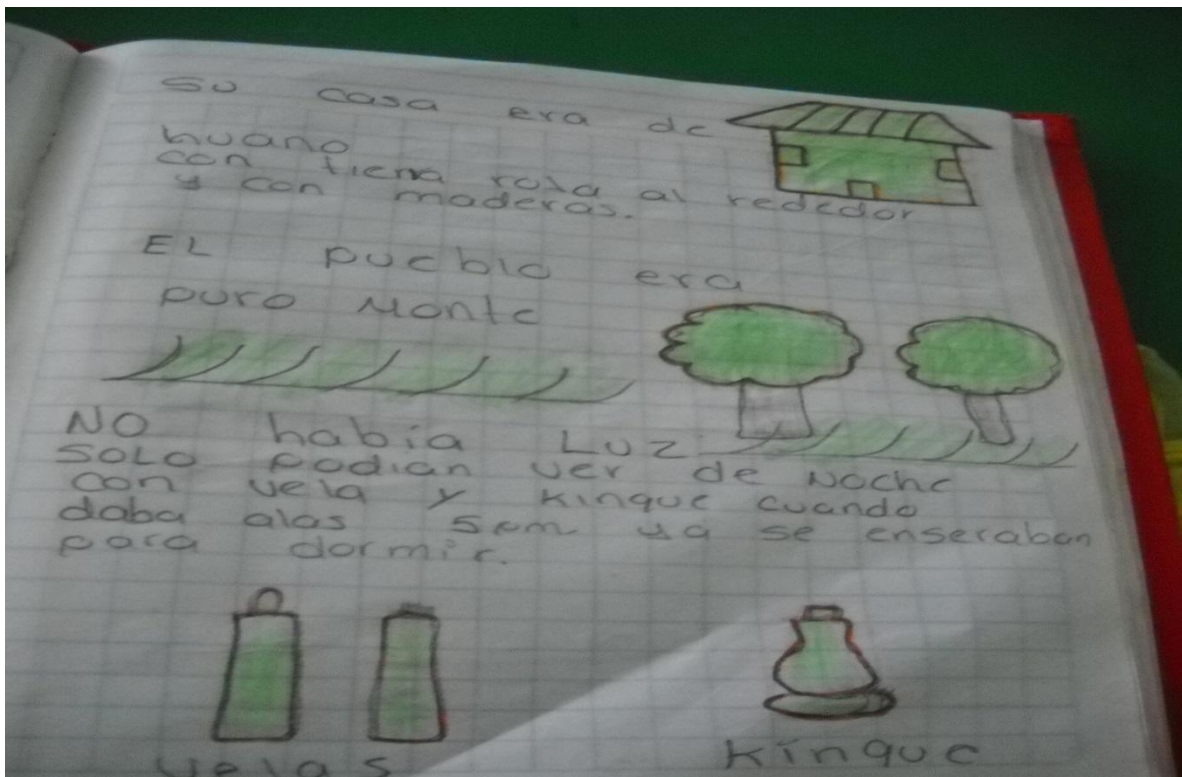 Su casa era de
huano
con tierra roja al rededor
y con maderas.
EL pueblo era
puro Monte
NO había LUZ
SOLO podian ver de Noche
con vela y Kinque cuando
daba alas 5am ya se enseraban
para dormir.
velas
Kinque